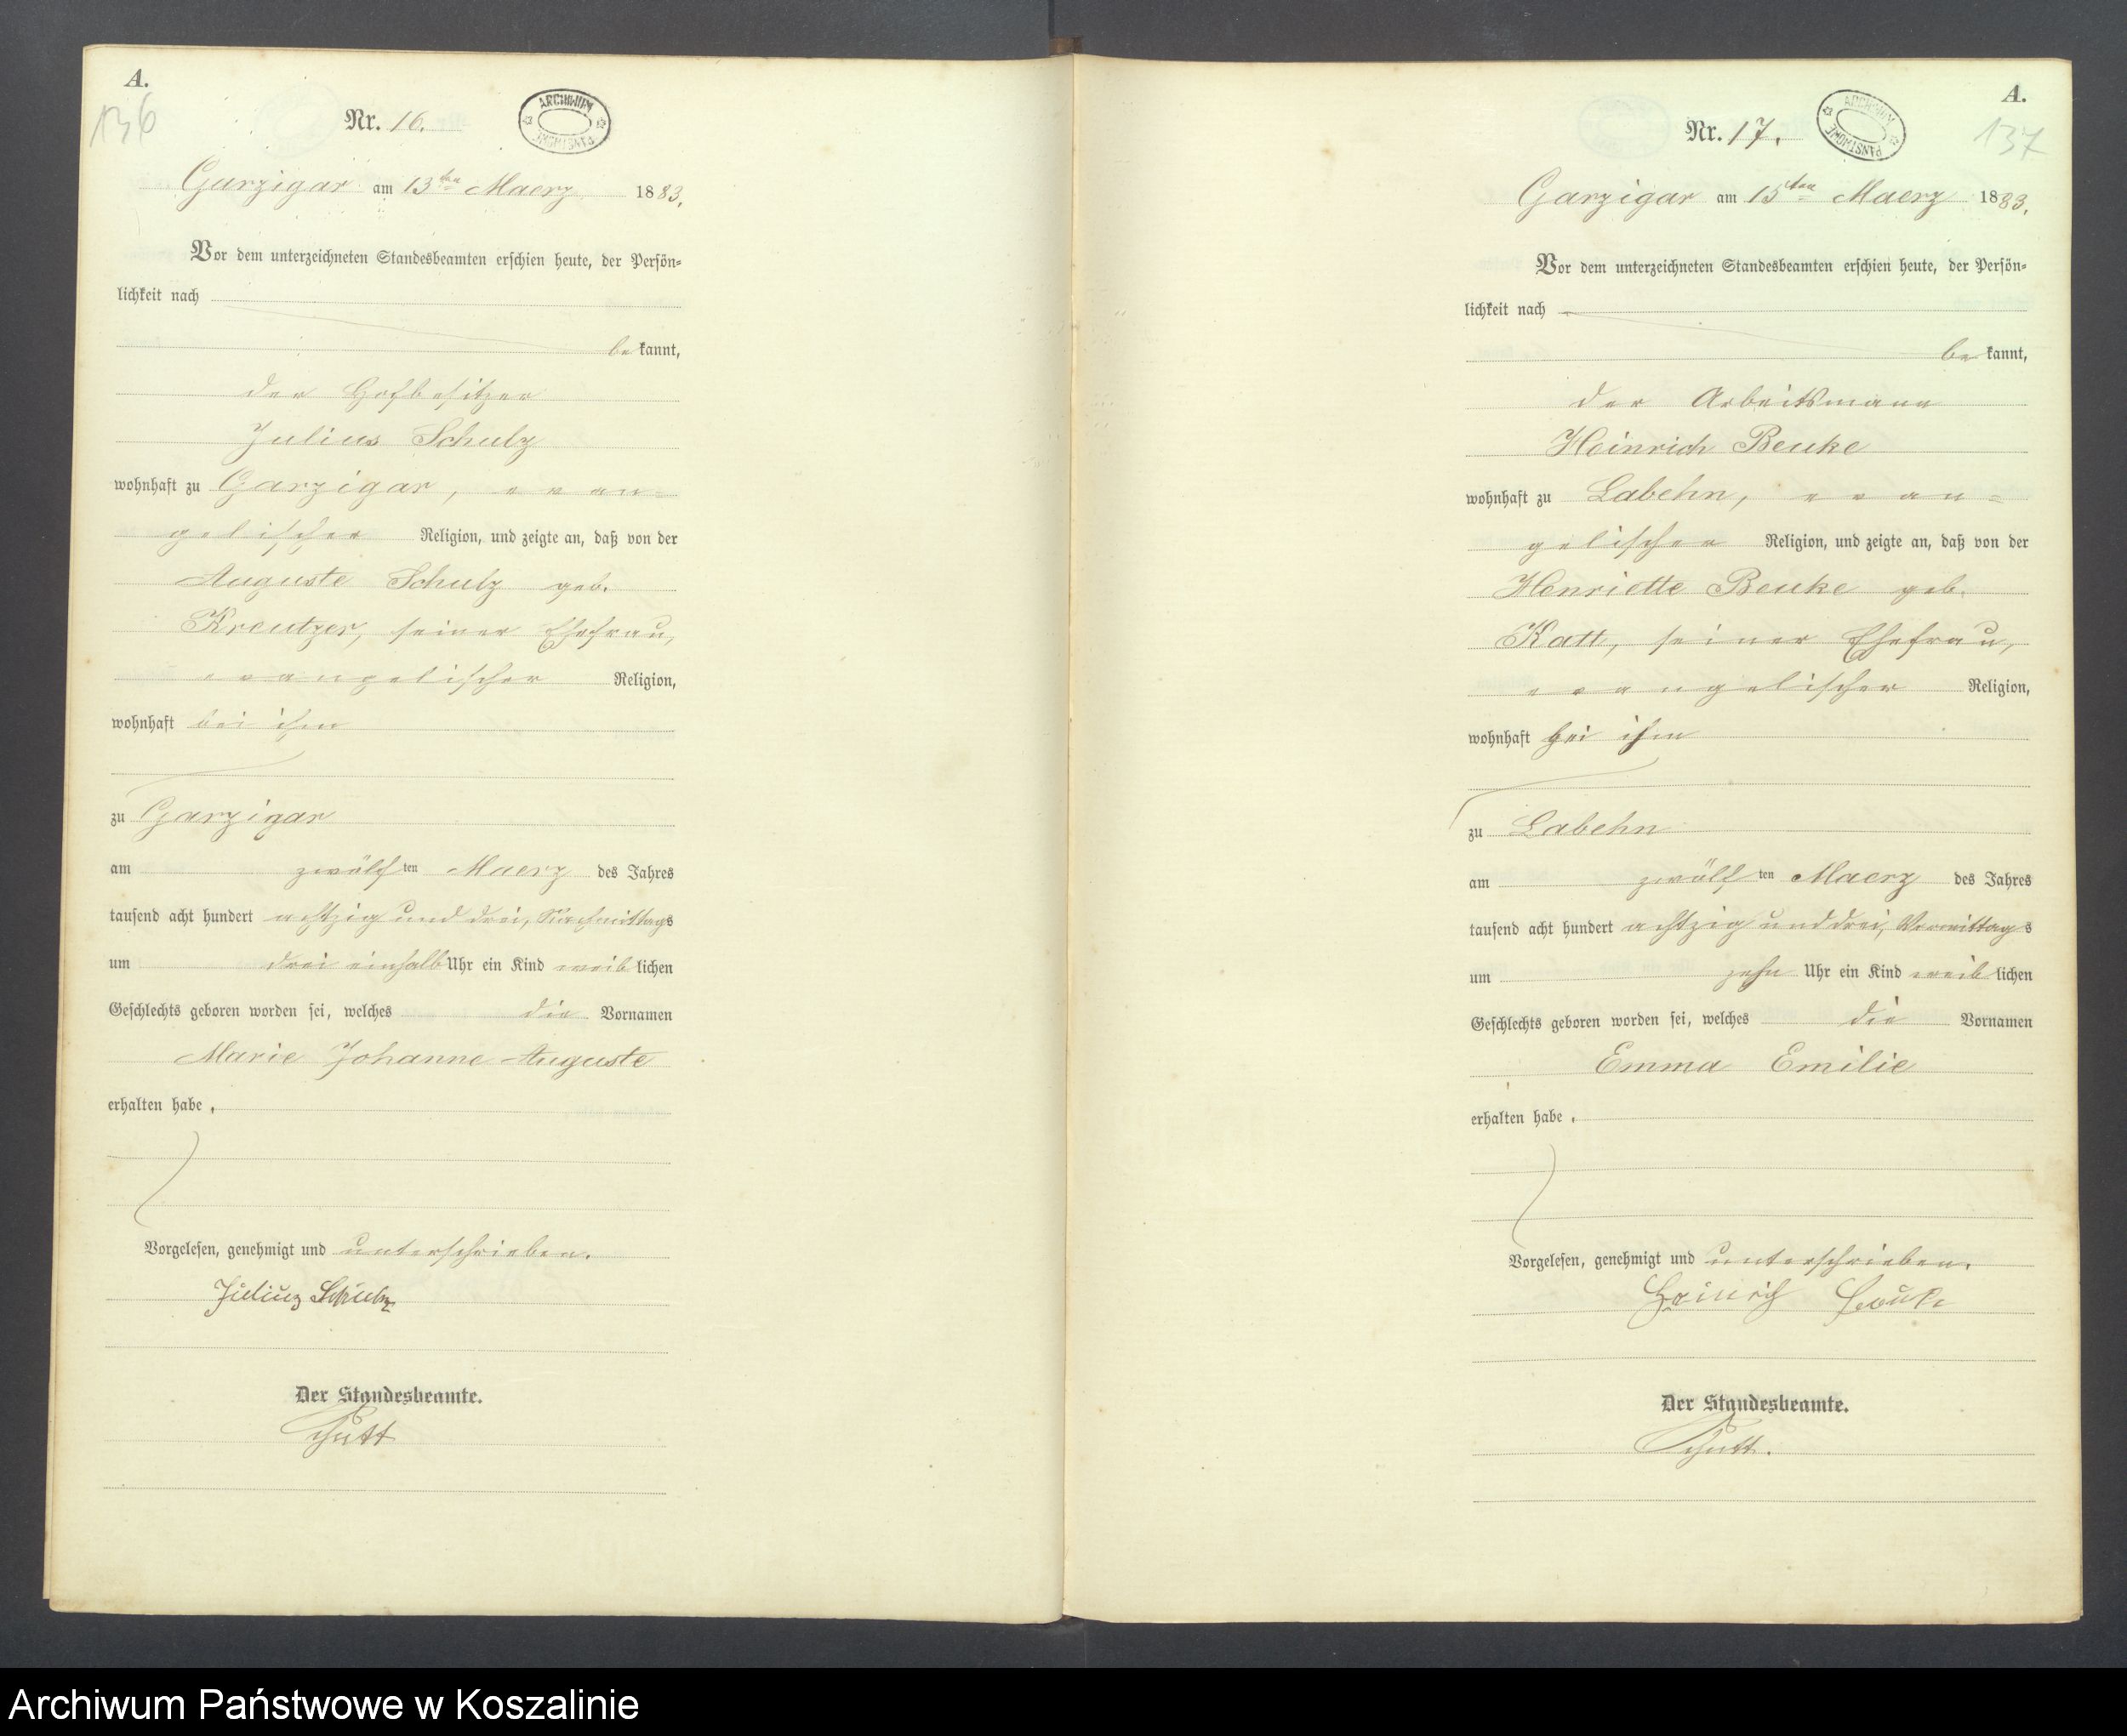 A.
136
Nr. 16.
ARCHIWUM
PAŃSTWOWE
Garzigar am 13ten Maerz 1883.
Vor dem unterzeichneten Standesbeamten erschien heute, der Persön-
lichkeit nach
bekannt,
der Hofbesitzer
Julius Schulz
wohnhaft zu Garzigar, evan-
gelischer Religion, und zeigte an, daß von der
Auguste Schulz geb.
Kreutzer, seiner Ehefrau,
evangelischer Religion,
wohnhaft bei ihm
zu Garzigar
am zwölften Maerz des Jahres
tausend acht hundert achtzig und drei, Nachmittags
um drei einhalb Uhr ein Kind weiblichen
Geschlechts geboren worden sei, welches die Vornamen
Marie Johanne Auguste
erhalten habe.
Vorgelesen, genehmigt und unterschrieben.
Julius Schulz
Der Standesbeamte.
Schutt
A.
137
Nr. 17.
ARCHIWUM
PAŃSTWOWE
Garzigar am 15ten Maerz 1883.
Vor dem unterzeichneten Standesbeamten erschien heute, der Persön-
lichkeit nach
bekannt,
der Arbeitsmann
Heinrich Beuke
wohnhaft zu Labehn, evan-
gelischer Religion, und zeigte an, daß von der
Henriette Beuke geb.
Katt, seiner Ehefrau,
evangelischer Religion,
wohnhaft bei ihm
zu Labehn
am zwölften Maerz des Jahres
tausend acht hundert achtzig und drei, Vormittags
um zehn Uhr ein Kind weiblichen
Geschlechts geboren worden sei, welches die Vornamen
Emma Emilie
erhalten habe.
Vorgelesen, genehmigt und unterschrieben.
Heinrich Beuke
Der Standesbeamte.
Schutt.
Archiwum Państwowe w Koszalinie